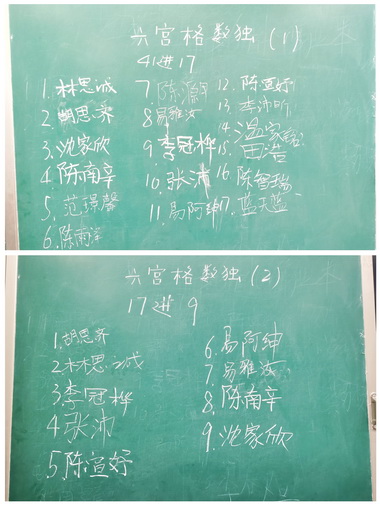 六宫格数独(1)
41进17
1.林思诚
2.胡思济
3.沈家欣
4.陈南辛
5.范璟馨
6.陈南
7.陈灏
8.易雅汝
9.李冠桦
10.张沛
11.易阿绅
12.陈萱妤
13.李沛昕
14.温家
15.田浩
16.陈智瑞
17.蓝天蓝
六宫格数独(2)
17进9
1.胡思济
2.林思诚
3.李冠桦
4.张沛
5.陈萱妤
6.易阿绅
7.易雅汝
8.陈南辛
9.沈家欣